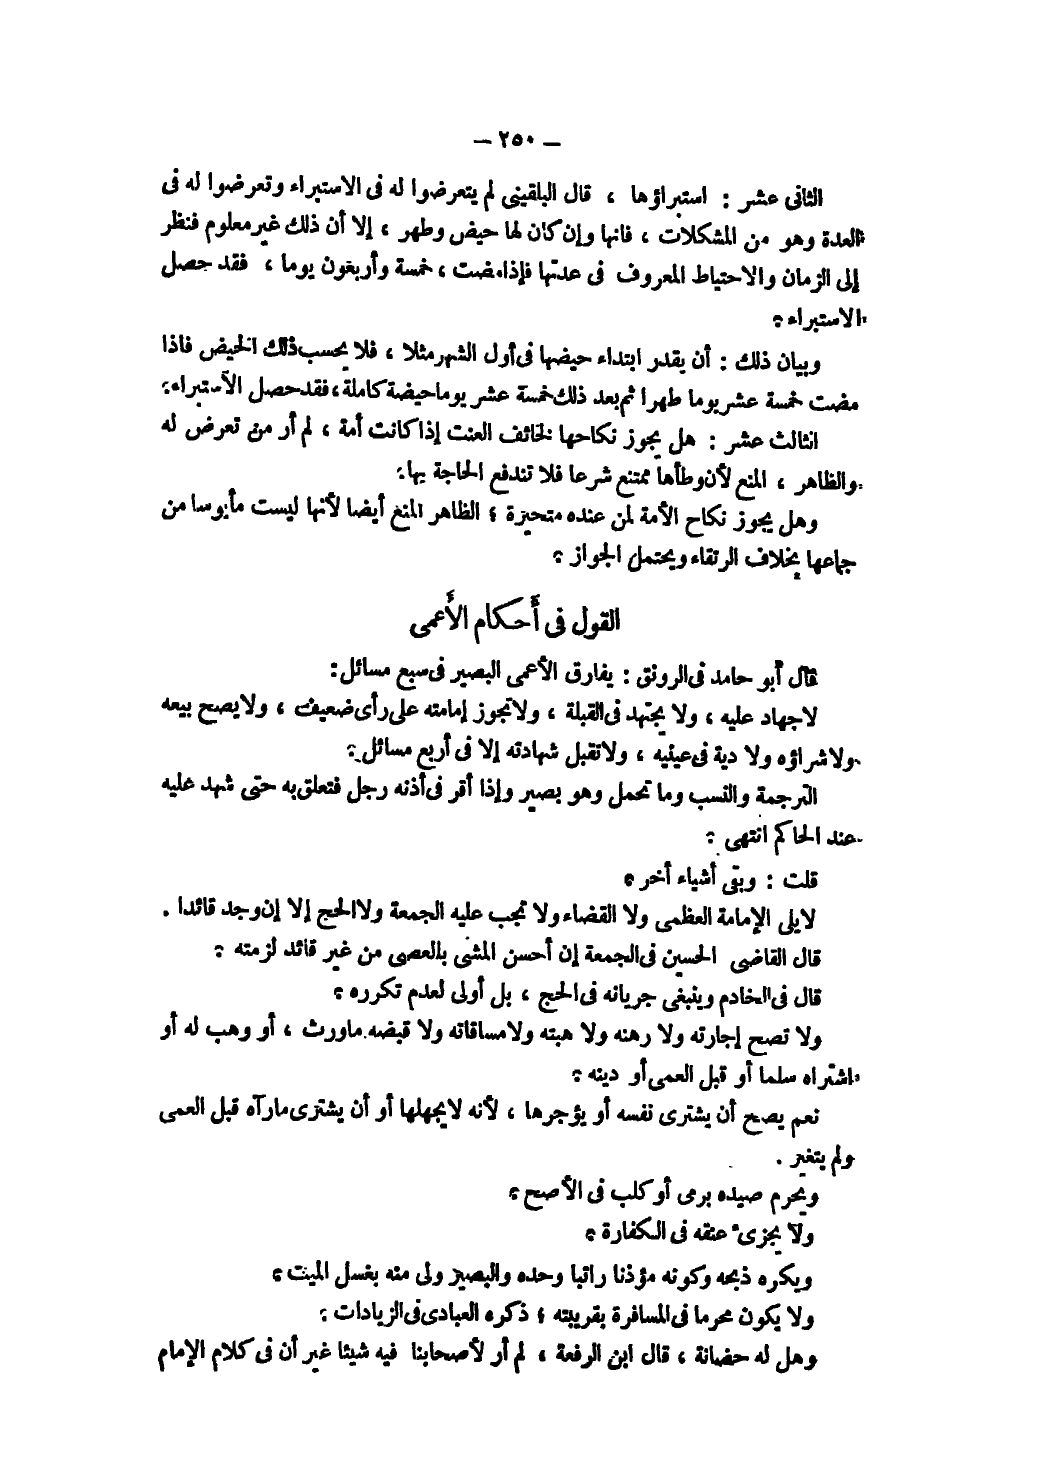 — ٢٥٠ —
الثانى عشر : استبراؤها ، قال البلقينى لم يتعرضوا له فى الاستبراء وتعرضوا له فى
العدة وهو من المشكلات ، فانها وإن كان لها حيض وطهر ، إلا أن ذلك غير معلوم فنظر
إلى الزمان والاحتياط المعروف فى عدتها فإذا مضت ، خمسة وأربعون يوما ، فقد حصل
الاستبراء .
وبيان ذلك : أن يقدر ابتداء حيضها فى أول الشهر مثلا ، فلا يحسب ذلك الحيض فاذا
مضت خمسة عشر يوما طهرا ثم بعد ذلك خمسة عشر يوما حيضة كاملة ، فقد حصل الاستبراء .
الثالث عشر : هل يجوز نكاحها لخائف العنت إذا كانت أمة ، لم أر من تعرض له
والظاهر ، المنع لأن وطأها ممتنع شرعا فلا تندفع الحاجة بها .
وهل يجوز نكاح الأمة لمن عنده متحيزة ؛ الظاهر المنع أيضا لأنها ليست مأيوسا من
جماعها بخلاف الرتقاء ويحتمل الجواز .
القول فى أحكام الأعمى
قال أبو حامد فى الرونق : يفارق الأعمى البصير فى سبع مسائل :
لاجهاد عليه ، ولا يجتهد فى القبلة ، ولا تجوز إمامته على رأى ضعيف ، ولا يصح بيعه
ولا شراؤه ولا دية فى عينيه ، ولا تقبل شهادته إلا فى أربع مسائل .
الترجمة والنسب وما تحمل وهو بصير وإذا أقر فى أذنه رجل فتعلق به حتى شهد عليه
عند الحاكم انتهى .
قلت : وبقى أشياء أخر .
لايلى الإمامة العظمى ولا القضاء ولا تجب عليه الجمعة ولا الحج إلا إن وجد قائدا .
قال القاضى الحسين فى الجمعة إن أحسن المشى بالعصى من غير قائد لزمته .
قال فى الخادم وينبغى جريانه فى الحج ، بل أولى لعدم تكرره .
ولا تصح إجارته ولا رهنه ولا هبته ولا مساقاته ولا قبضه ماورث ، أو وهب له أو
اشتراه سلما أو قبل العمى أو دينه .
نعم يصح أن يشترى نفسه أو يؤجرها ، لأنه لا يجهلها أو أن يشترى مارآه قبل العمى
ولم يتغير .
ويحرم صيده برمى أو كلب فى الأصح .
ولا يجزىء عتقه فى الكفارة .
ويكره ذبحه وكونه مؤذنا راتبا وحده والبصير ولى منه بغسل الميت .
ولا يكون محرما فى المسافرة بقريبته ؛ ذكره العبادى فى الزيادات .
وهل له حضانة ، قال ابن الرفعة ، لم أر لأصحابنا فيه شيئا غير أن فى كلام الإمام